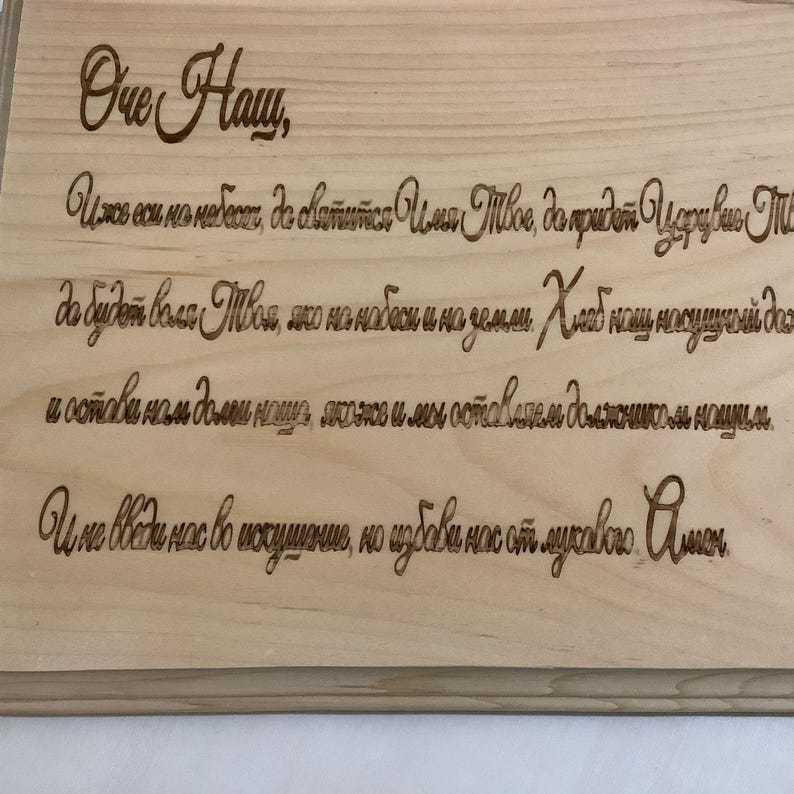 Оче Наш,
Иже еси на небесех, да святится Имя Твое, да придет Царувие Тв
да будет воля Твоя, яко на набеси и на земли. Хлеб наш насущный да
и остави нам долги наша, якоже и мы оставляем должником нашим.
И не введи нас во искушение, но избави нас от лукавого. Амен.